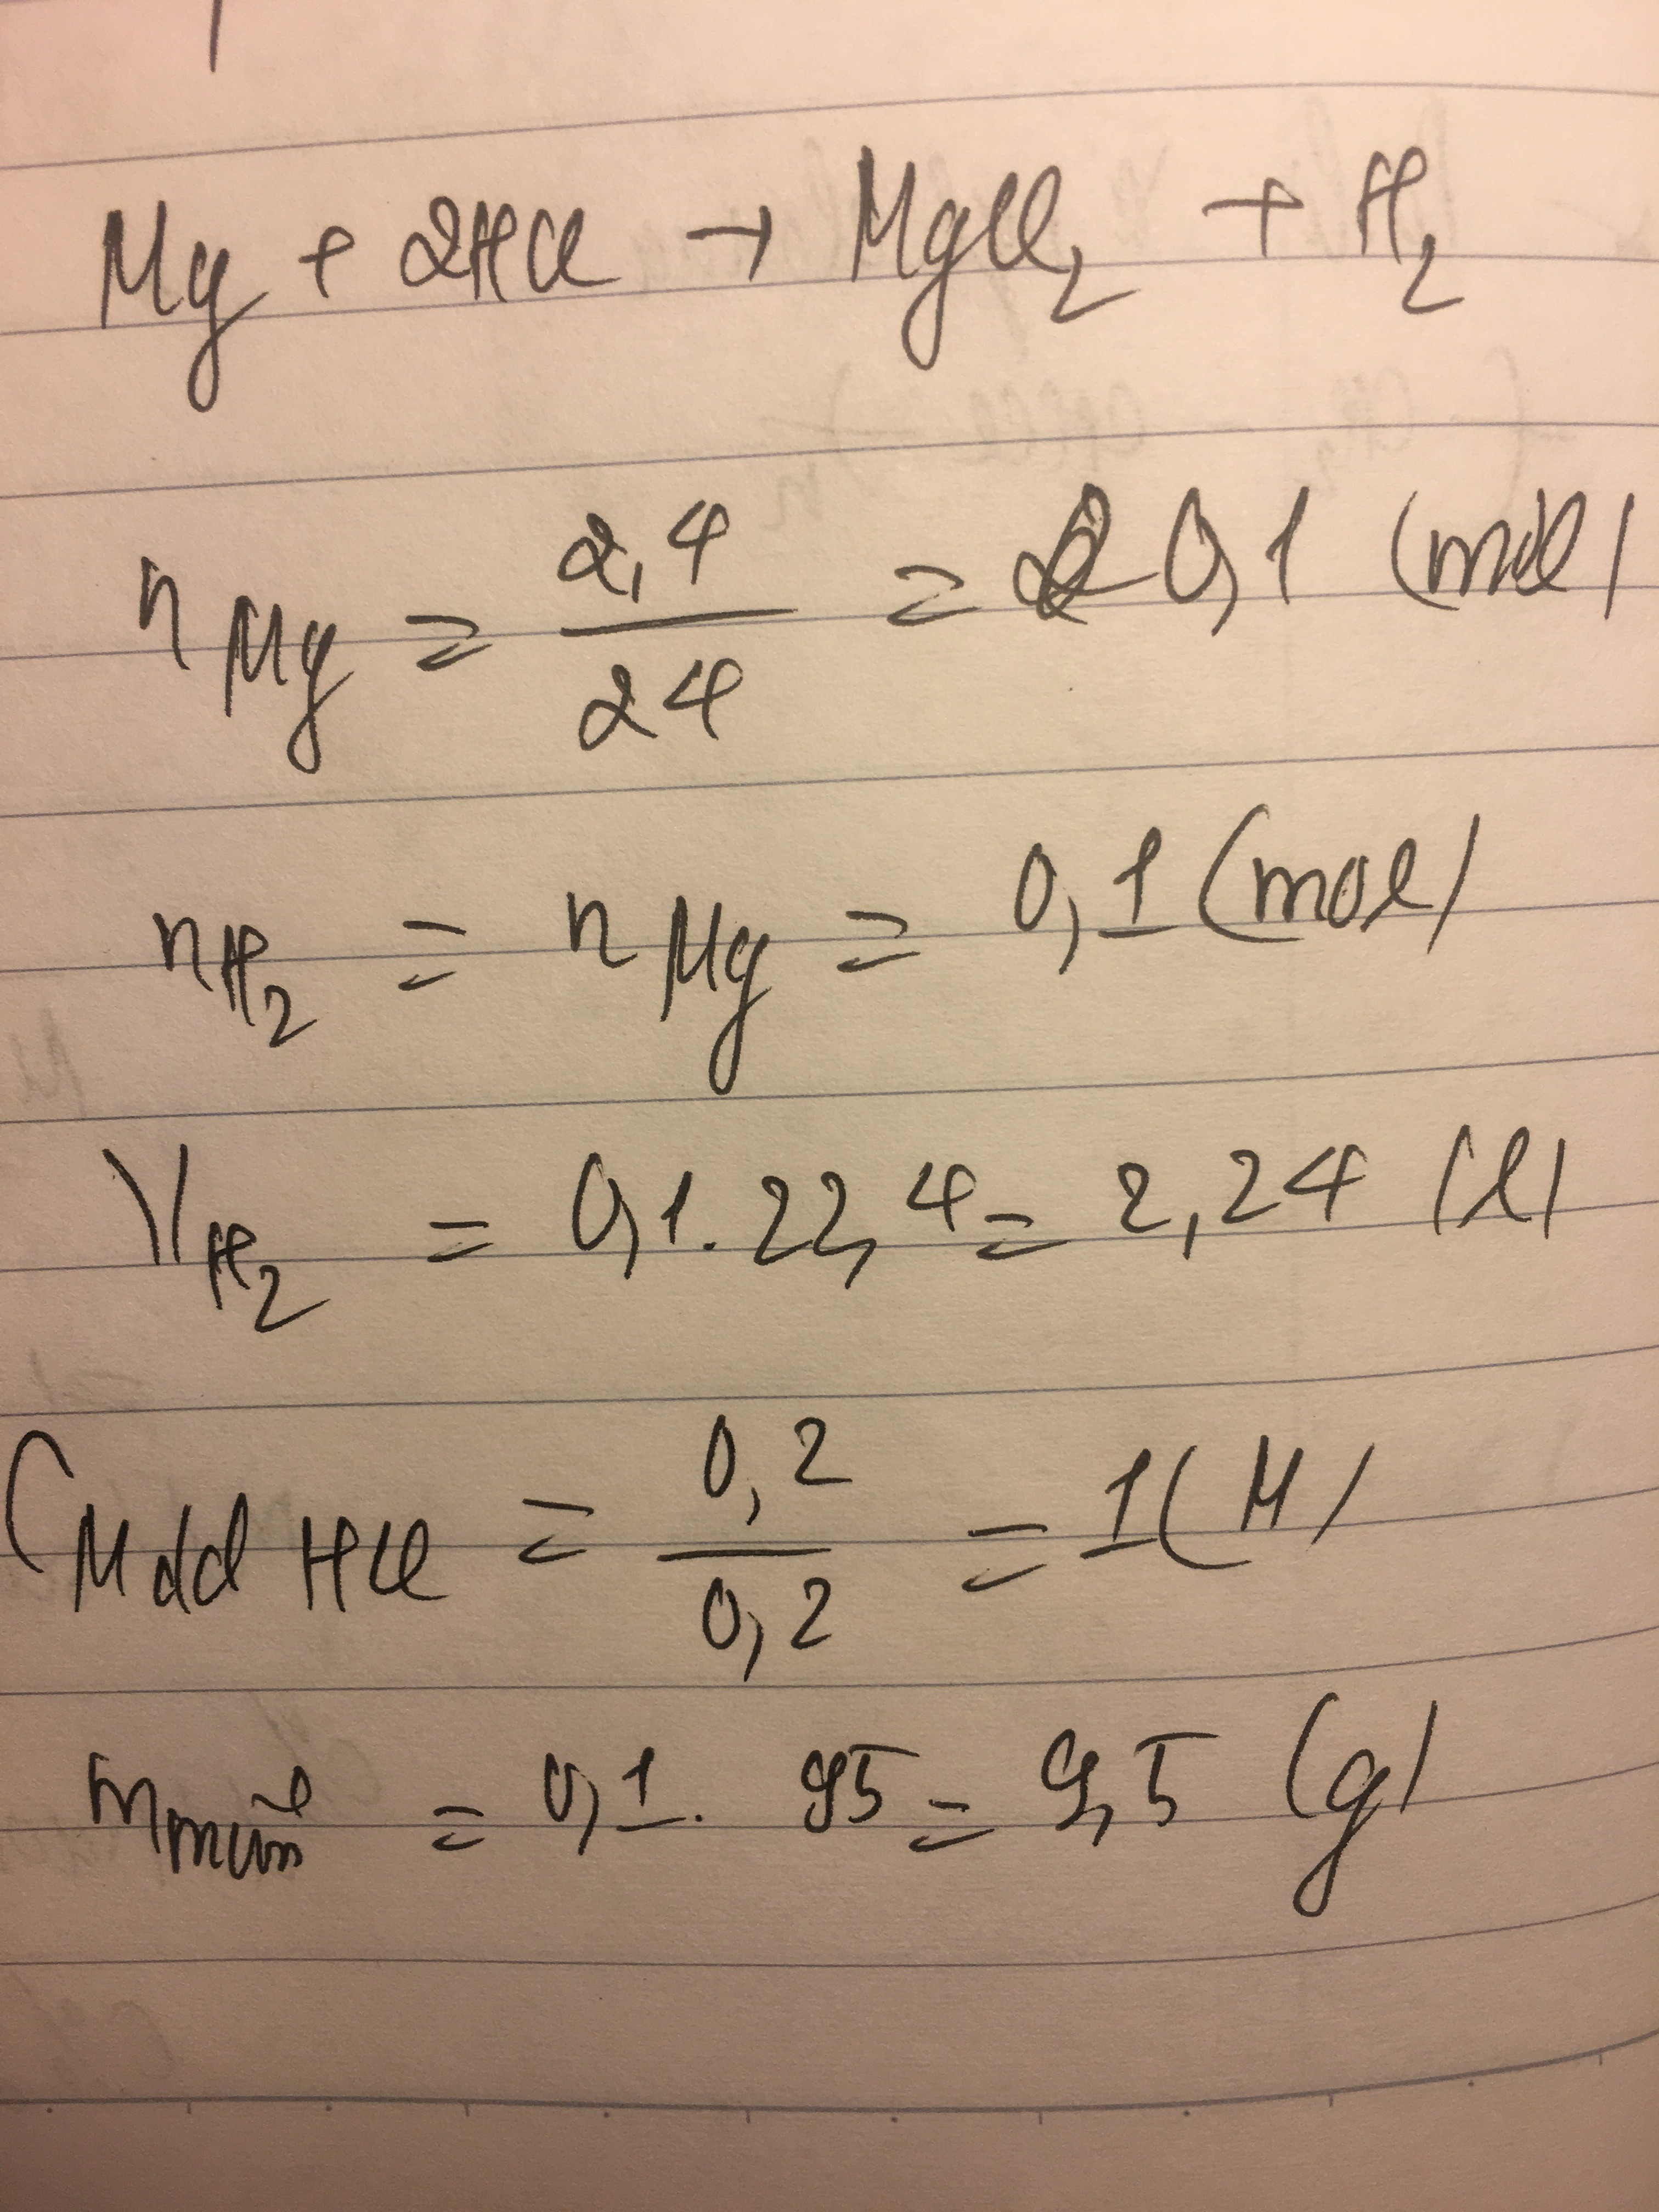 Mg + 2HCl → MgCl₂ + H₂
n Mg = 2,4 / 24 = 0,1 (mol)
n H₂ = n Mg = 0,1 (mol)
V H₂ = 0,1 . 22,4 = 2,24 (l)
C M dd HCl = 0,2 / 0,2 = 1 (M)
m muối = 0,1 . 95 = 9,5 (g)